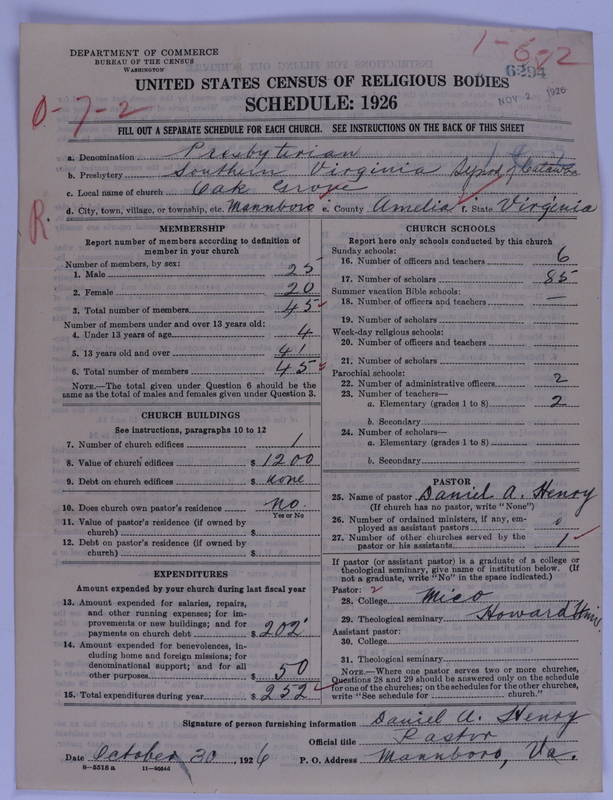 DEPARTMENT OF COMMERCE
BUREAU OF THE CENSUS
WASHINGTON
1-6-2
6294
NOV 2 1926
0-7-2
UNITED STATES CENSUS OF RELIGIOUS BODIES
SCHEDULE: 1926
FILL OUT A SEPARATE SCHEDULE FOR EACH CHURCH. SEE INSTRUCTIONS ON THE BACK OF THIS SHEET
a. Denomination Presbyterian
b. Presbytery Southern Virginia Synod of Catawba
c. Local name of church Oak Grove
R.
d. City, town, village, or township, etc. Mannboro e. County Amelia f. State Virginia
MEMBERSHIP
Report number of members according to definition of
member in your church
Number of members, by sex:
1. Male 25
2. Female 20
3. Total number of members 45
Number of members under and over 13 years old:
4. Under 13 years of age 4
5. 13 years old and over 41
6. Total number of members 45
NOTE.—The total given under Question 6 should be
same as the total of males and females given under Question 3.
CHURCH BUILDINGS
See instructions, paragraphs 10 to 12
7. Number of church edifices 1
8. Value of church edifices $ 1200
9. Debt on church edifices $ none
10. Does church own pastor's residence? no
Yes or No
11. Value of pastor's residence (if owned by
church) $
12. Debt on pastor's residence (if owned by
church) $
EXPENDITURES
Amount expended by your church during last fiscal year
13. Amount expended for salaries, repairs,
and other running expenses; for im-
provements or new buildings; and for
payments on church debt $ 202
14. Amount expended for benevolences, in-
cluding home and foreign missions; for
denominational support; and for all
other purposes $ 50
15. Total expenditures during year $ 252
CHURCH SCHOOLS
Report here only schools conducted by this church
Sunday schools:
16. Number of officers and teachers 6
17. Number of scholars 85
Summer vacation Bible schools:
18. Number of officers and teachers —
19. Number of scholars
Week-day religious schools:
20. Number of officers and teachers
21. Number of scholars
Parochial schools:
22. Number of administrative officers 2
23. Number of teachers—
a. Elementary (grades 1 to 8) 2
b. Secondary
24. Number of scholars—
a. Elementary (grades 1 to 8)
b. Secondary
PASTOR
25. Name of pastor Daniel A. Henry
(If church has no pastor, write "None")
26. Number of ordained ministers, if any, em-
ployed as assistant pastors 0
27. Number of other churches served by the
pastor or his assistants 1
If pastor (or assistant pastor) is a graduate of a college or
theological seminary, give name of institution below. (If
not a graduate, write "No" in the space indicated.)
Pastor: 2
28. College Mico
29. Theological seminary Howard Univ.
Assistant pastor:
30. College
31. Theological seminary
NOTE.—Where one pastor serves two or more churches,
Questions 28 and 29 should be answered only on the schedule
for one of the churches; on the schedules for the other churches,
write "See schedule for church."
Signature of person furnishing information Daniel A. Henry
Official title Pastor
Date October 30, 1926 P. O. Address Mannboro, Va.
8-5518a